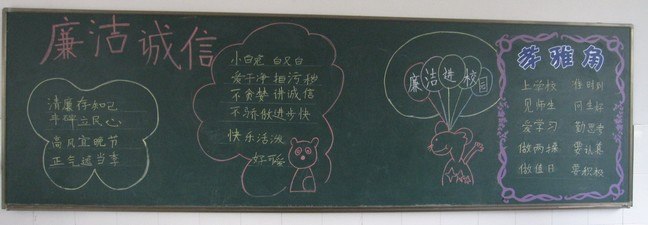 廉洁诚信
清廉存知己
丰碑立民心
高风宜晚节
正气迎当季
小白兔 白又白
爱干净 拒污秽
不贪婪 讲诚信
不骄傲 进步快
快乐活泼
好可爱
廉洁进校园
芽雅角
上学校 准时到
见师生 问生好
爱学习 勤思考
做两操 要认真
做值日 要积极